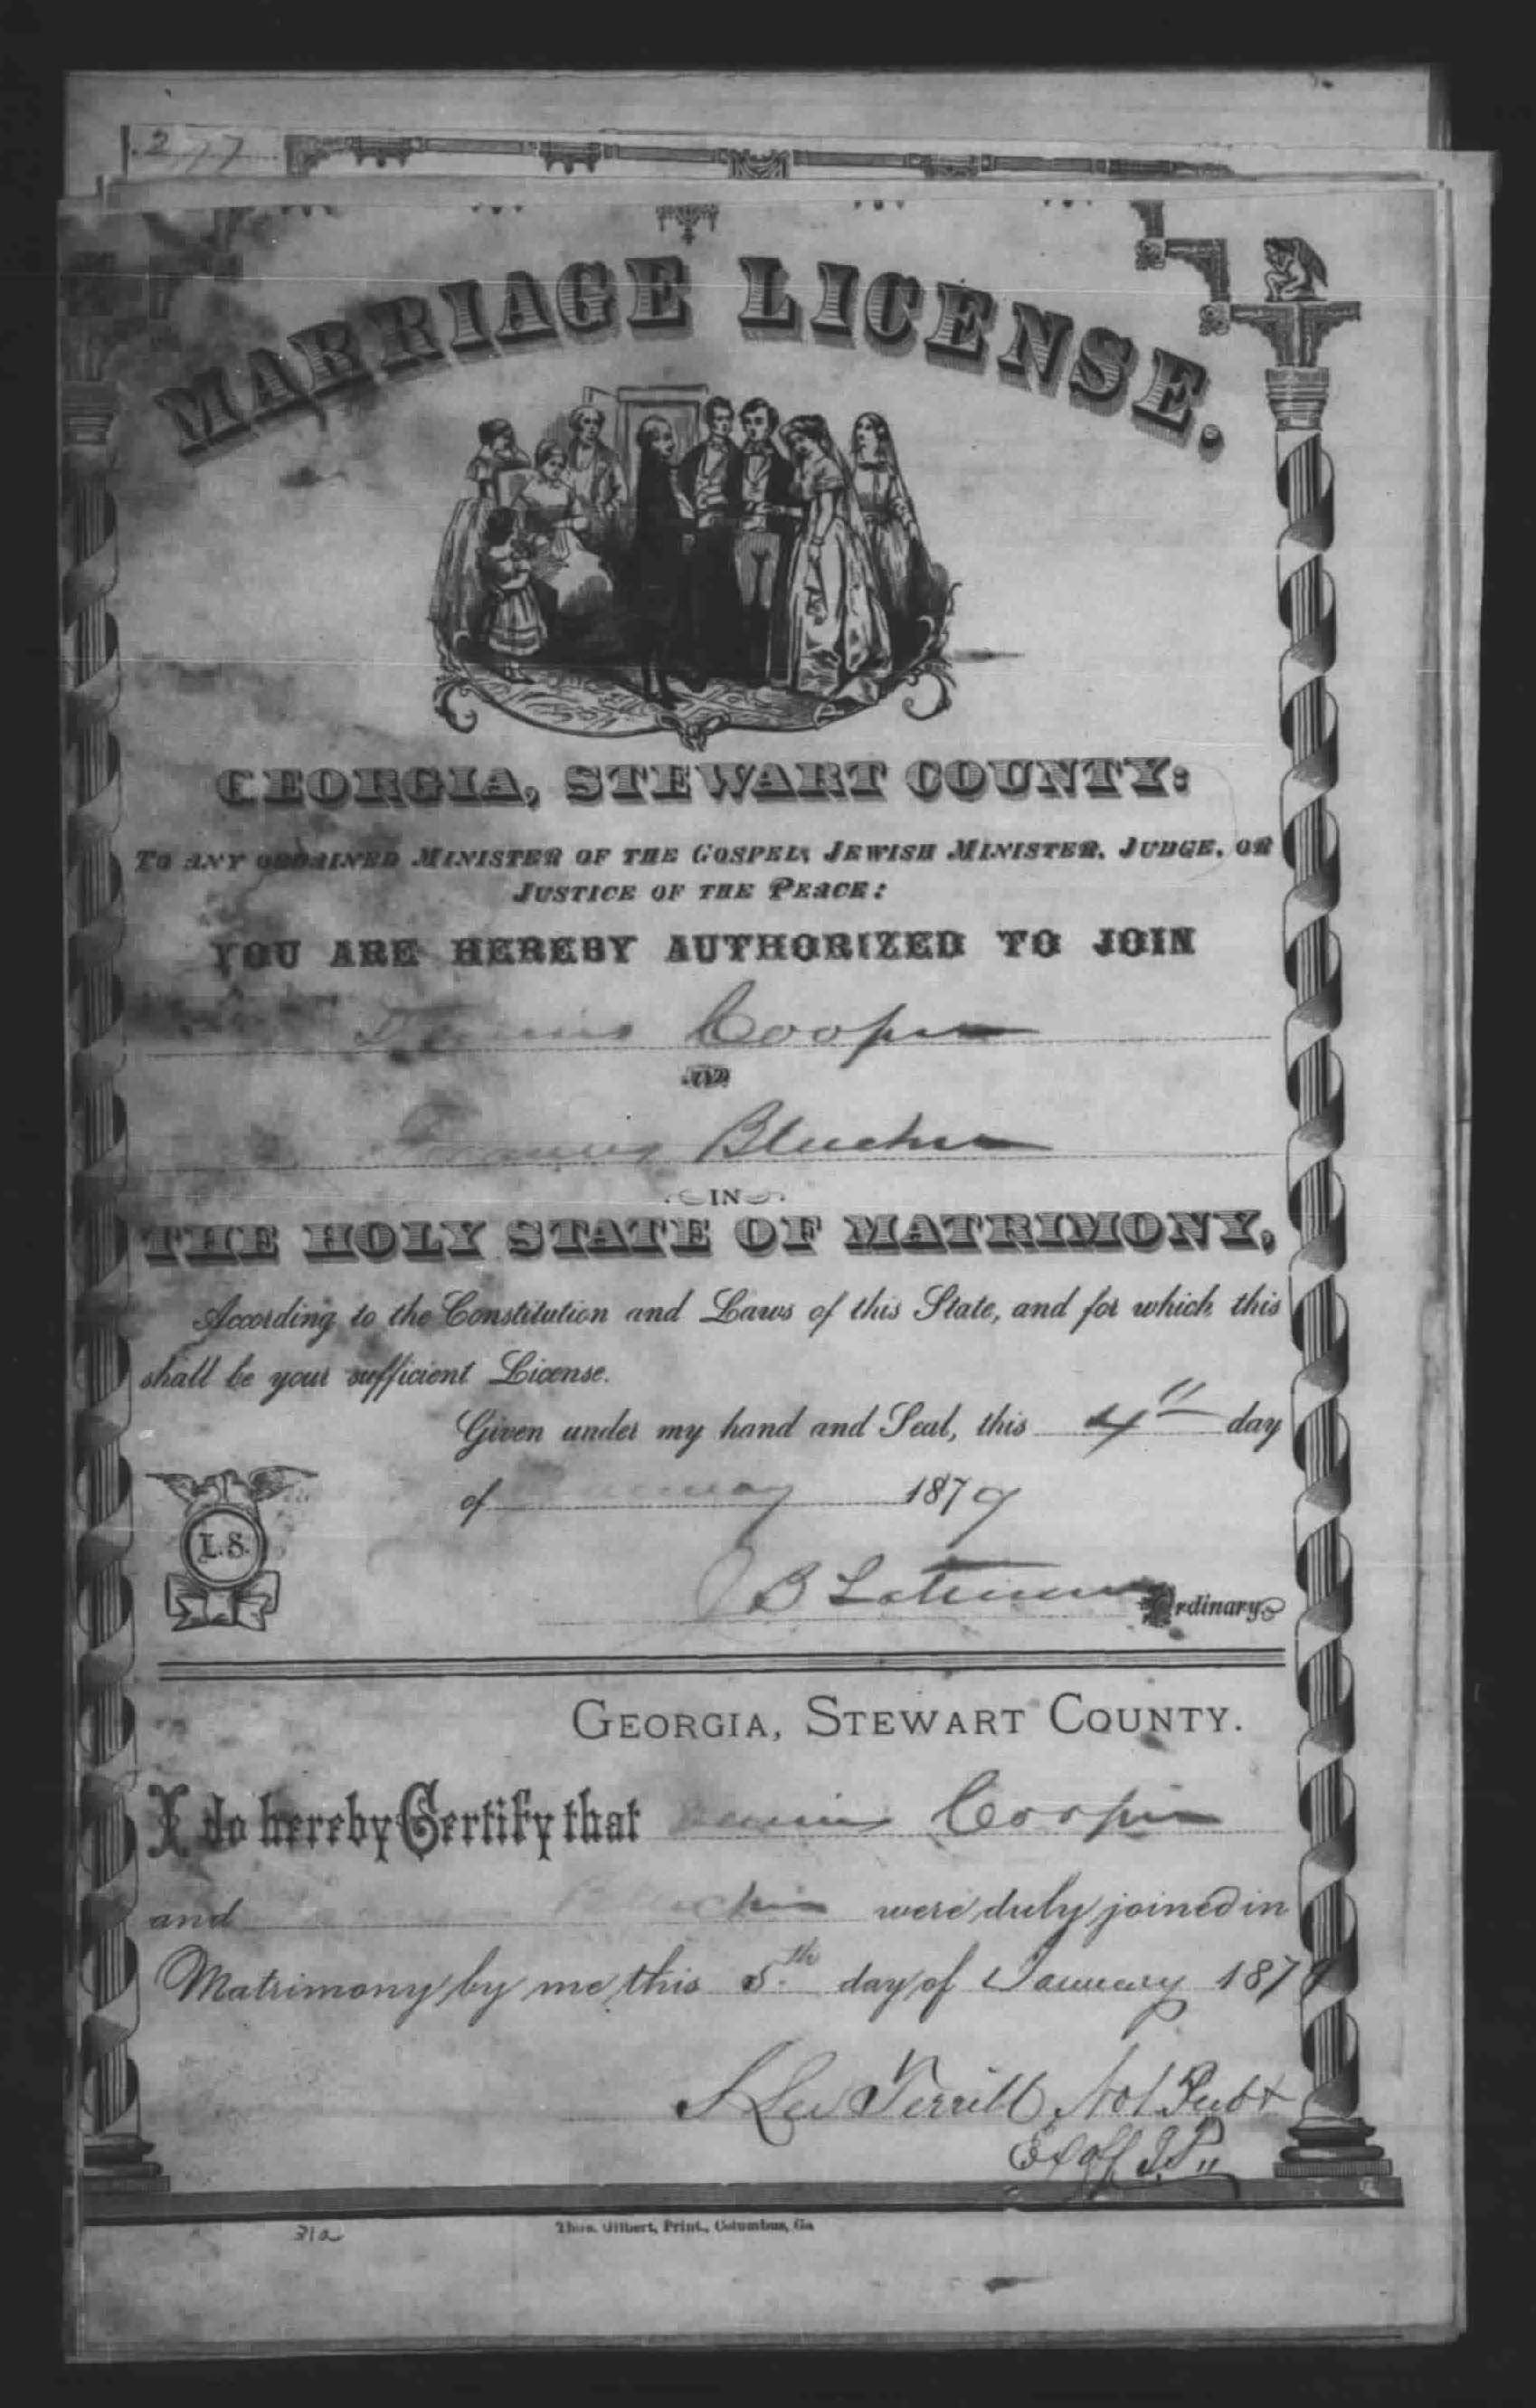 277
MARRIAGE LICENSE.
GEORGIA, STEWART COUNTY:
TO ANY ORDAINED MINISTER OF THE GOSPEL, JEWISH MINISTER, JUDGE, OR
JUSTICE OF THE PEACE:
YOU ARE HEREBY AUTHORIZED TO JOIN
Cooper
AND
Blucher
IN
THE HOLY STATE OF MATRIMONY,
According to the Constitution and Laws of this State, and for which this
shall be your sufficient License.
Given under my hand and Seal, this 4th day
of January 1879
L.S.
J B Latimer Ordinary.
GEORGIA, STEWART COUNTY.
I do hereby Certify that Cooper
and were duly joined in
Matrimony by me this 5th day of January 1879
Terrill Not Pub &
Ex off J.P.
Thos. Gilbert, Print., Columbus, Ga
31a